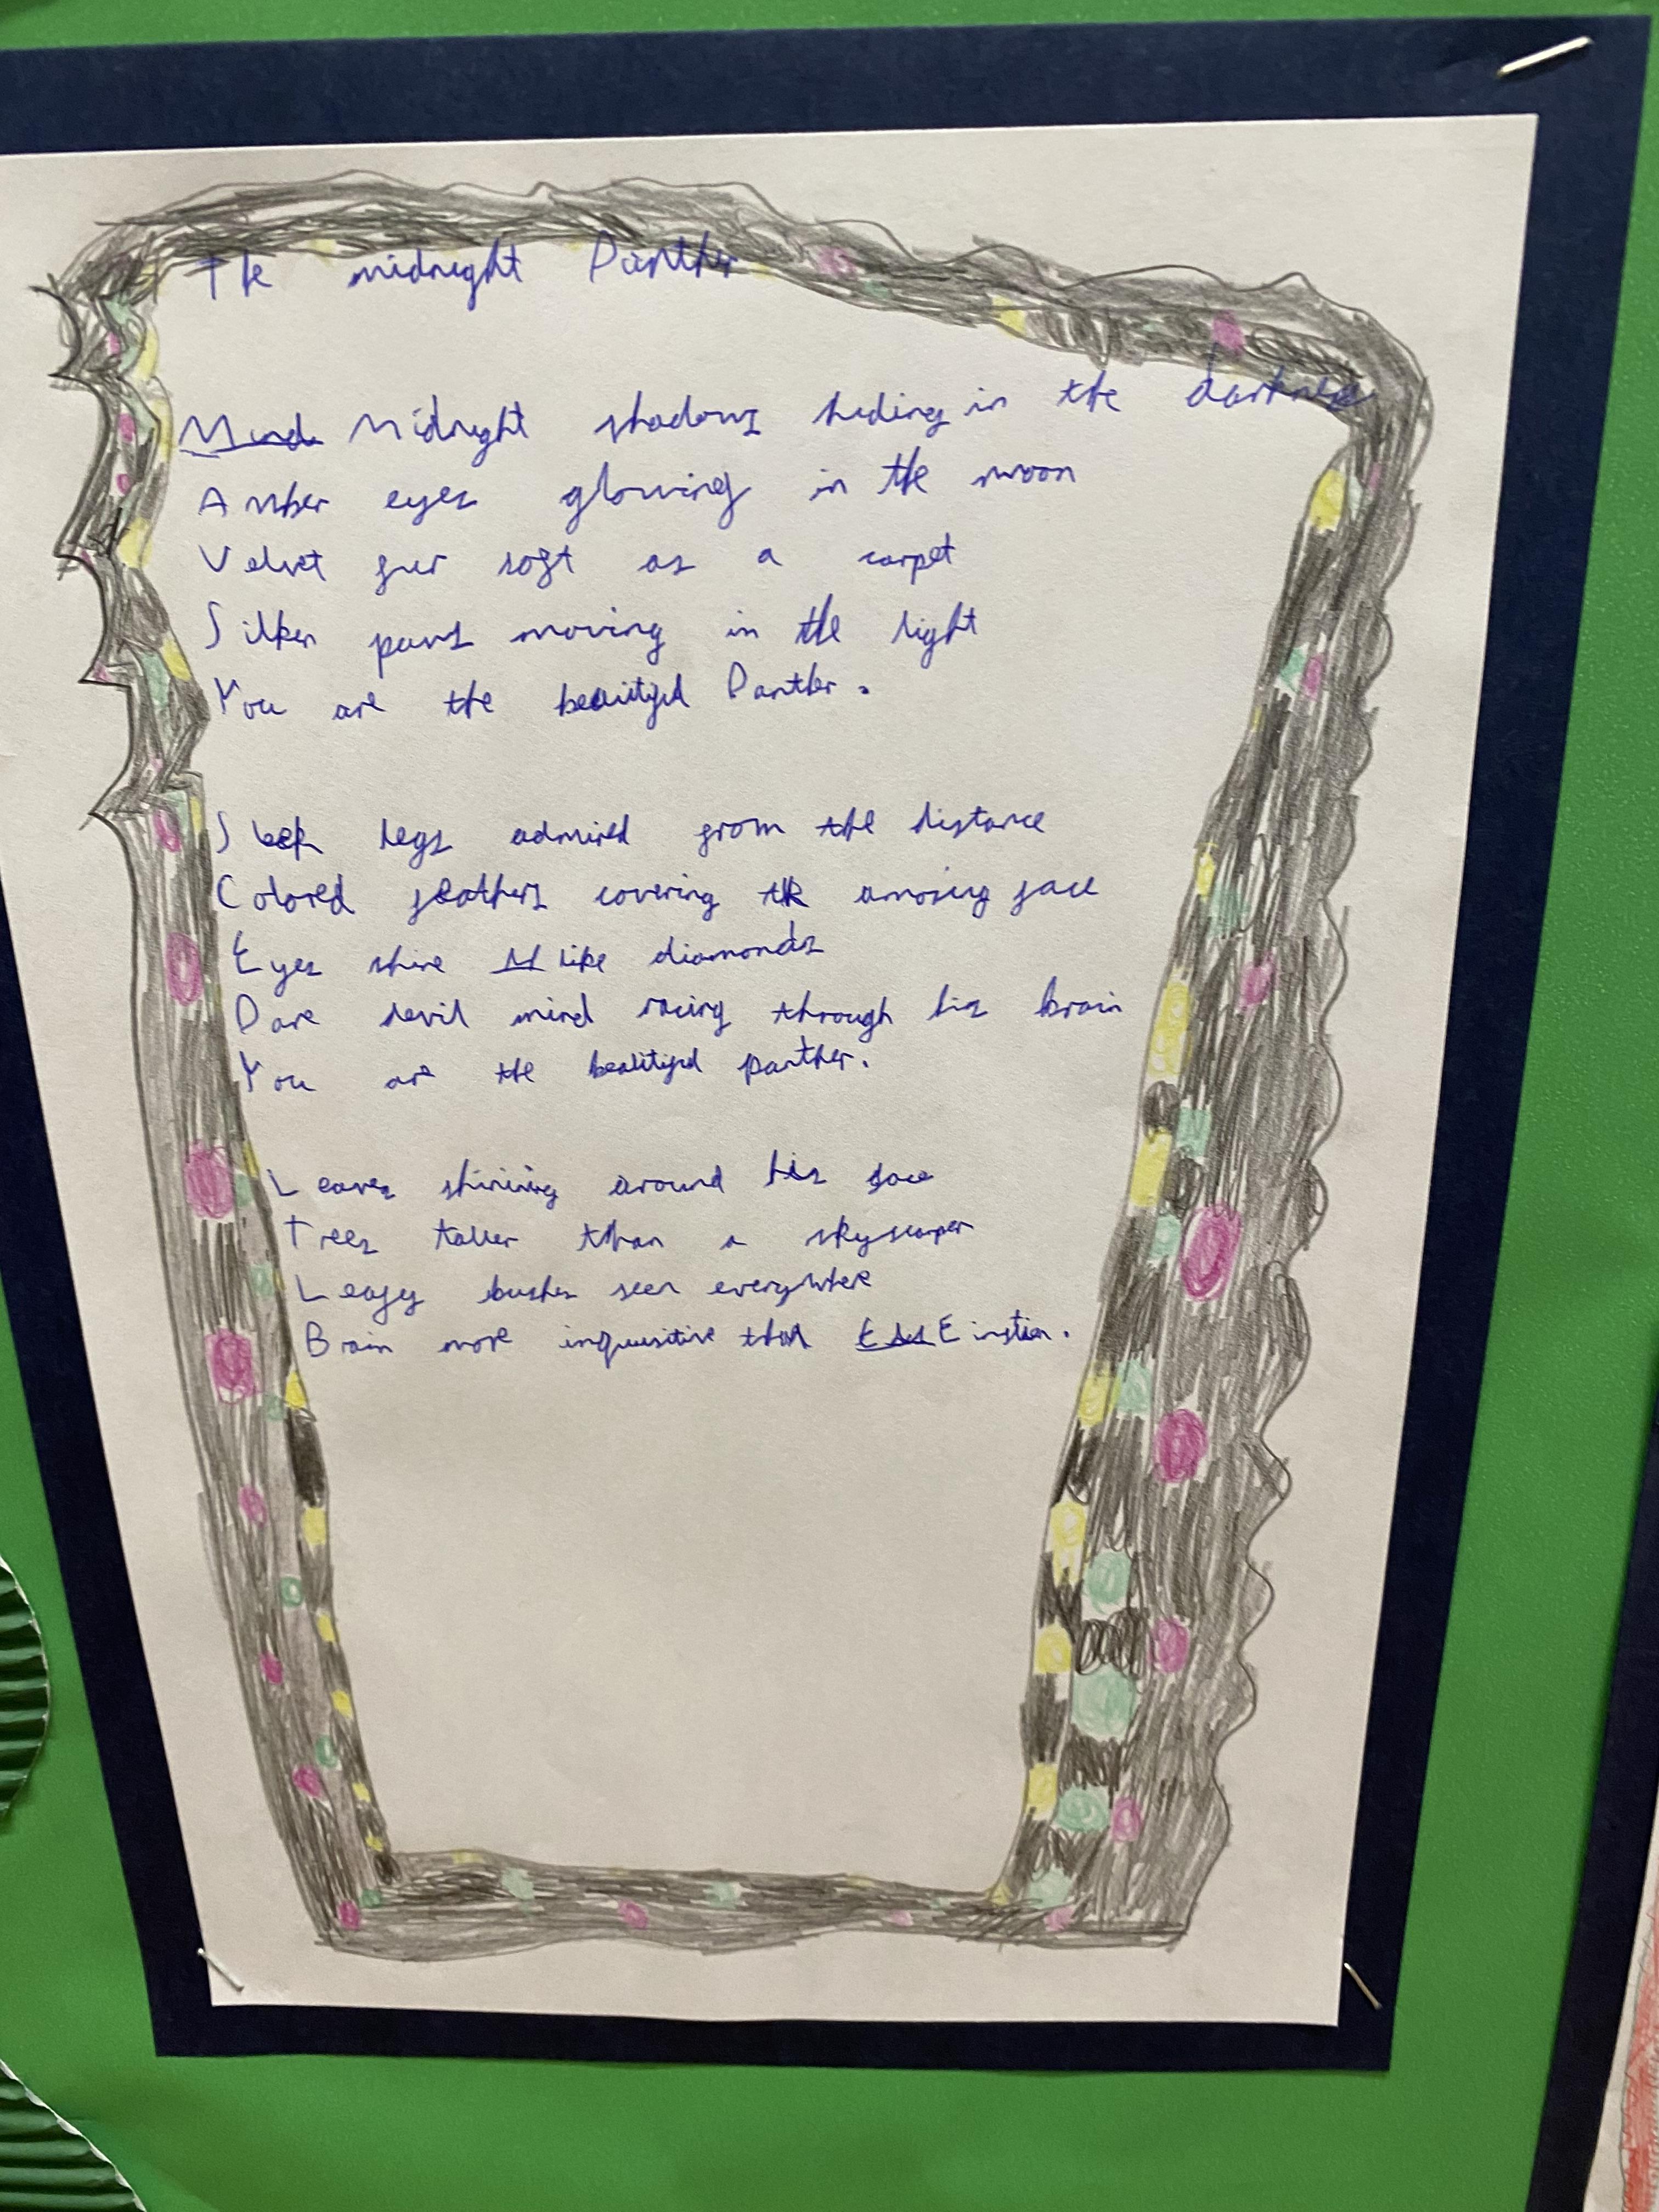 The midnight Panther
Midnight shadows hiding in the darkness
Amber eyes glowing in the moon
Velvet fur soft as a carpet
Silken paws moving in the light
You are the beautiful Panther.
Sleek legs admired from the distance
Colored feathers covering the amazing face
Eyes shine like diamonds
Dare devil mind racing through his brain
You are the beautiful panther.
Leaves shining around his face
Trees taller than a skyscraper
Leafy bushes seen everywhere
Brain more inquisitive than Einstien.